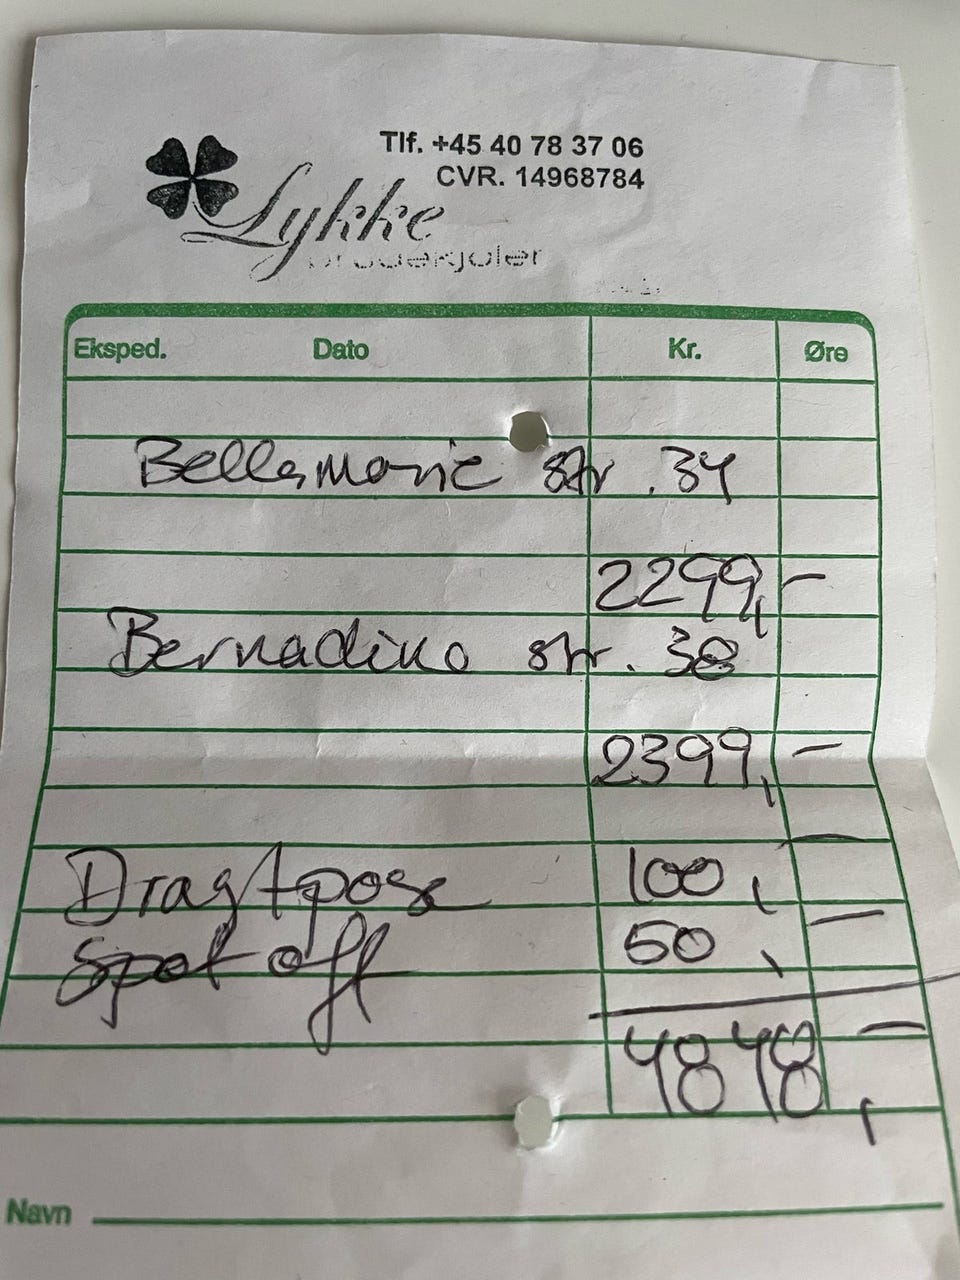 Tlf. +45 40 78 37 06
CVR. 14968784
Lykke
brudekjoler
Eksped. Dato Kr. Øre
Bellamarie str. 34
2299,-
Bernadina str. 38
2399,-
Dragtpose 100,-
Spot off 50,-
4848,-
Navn